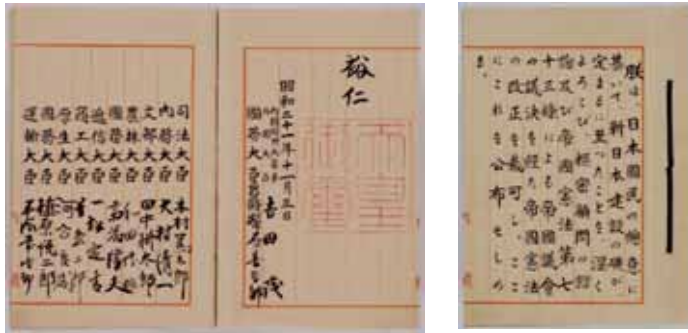 朕は、日本國民の總意に
基いて、新日本建設の礎が、
定まるに至つたことを、深く
よろこび、樞密顧問の諮
詢及び帝國憲法第七
十三條による帝國議會
の議決を経た帝國憲法
の改正を裁可し、ここ
にこれを公布せしめ
る。
裕仁
天皇御璽
昭和二十一年十一月三日
内閣總理大臣兼
外務大臣 吉田茂
國務大臣 男爵 幣原喜重郎
司法大臣 木村篤太郎
内務大臣 大村清一
文部大臣 田中耕太郎
農林大臣 和田博雄
國務大臣 斎藤隆夫
逓信大臣 一松定吉
商工大臣 星島二郎
厚生大臣 河合良成
國務大臣 植原悦二郎
運輸大臣 平塚常次郎